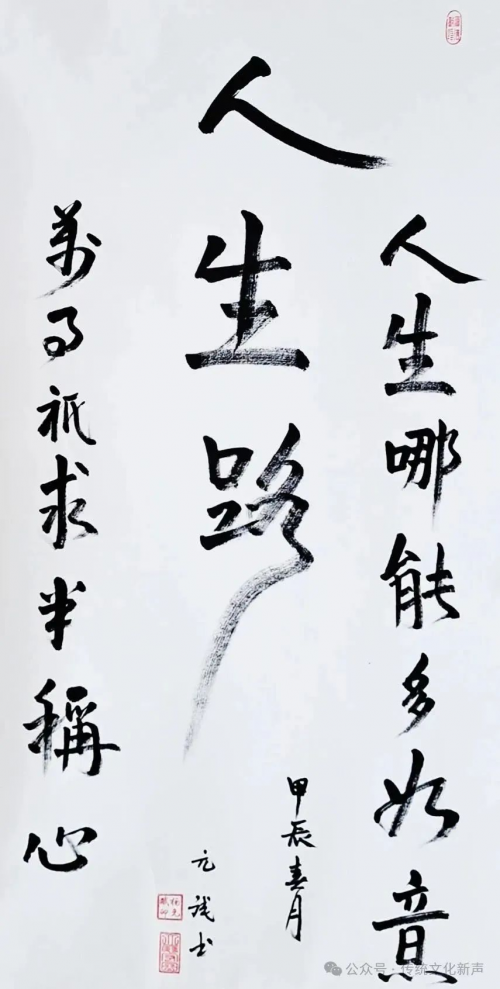 人生哪能多如意
人生路
甲辰春月
萬事祇求半稱心
公众号·传统文化新声